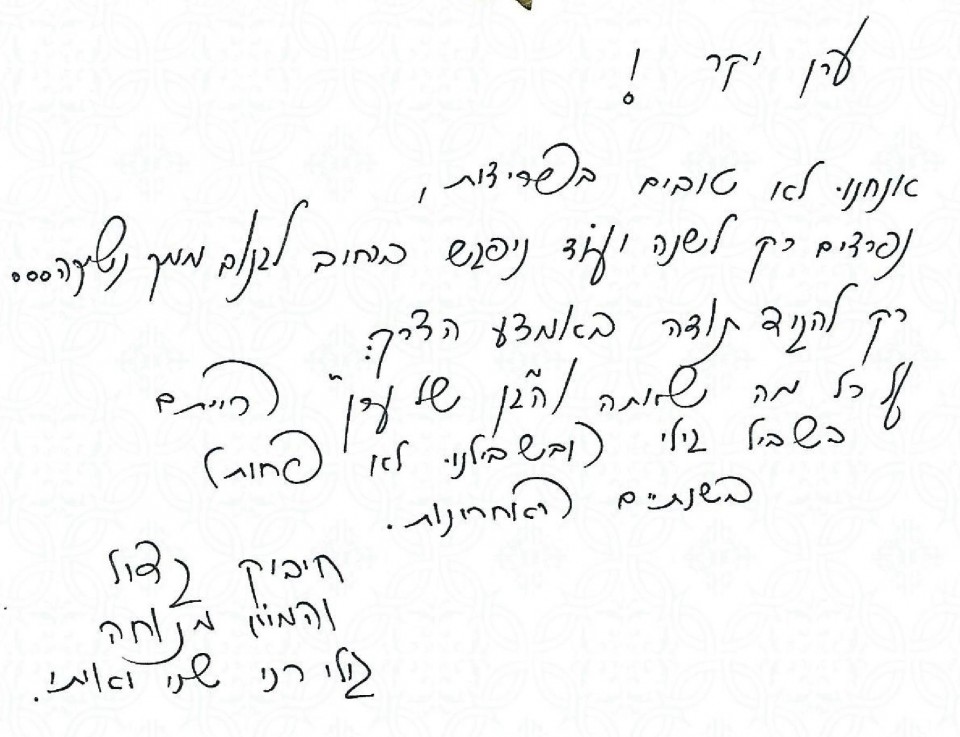 ערן יקר !
אנחנו לא טובים בפרידות,
נפרדים רק לשנה ועוד ניפגש ברחוב לגנוב ממך נשיקה...
רק להגיד תודה באמצע הדרך:
על כל מה שאתה ו"הגן של ערן" הייתם
בשביל גילי (ובשבילנו לא פחות)
בשנתיים האחרונות.
חיבוק גדול
והמון מנוחה
גילי רני שני ואותי.